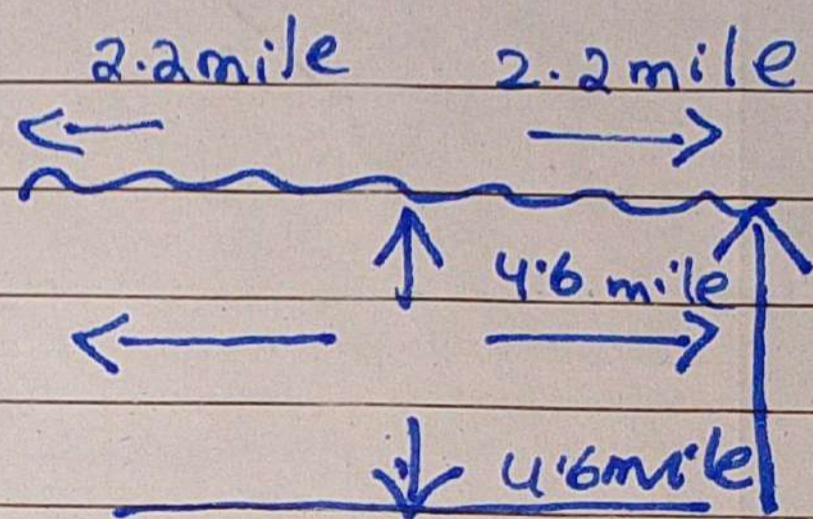 2.2mile 2.2mile
4.6 mile
4.6mile